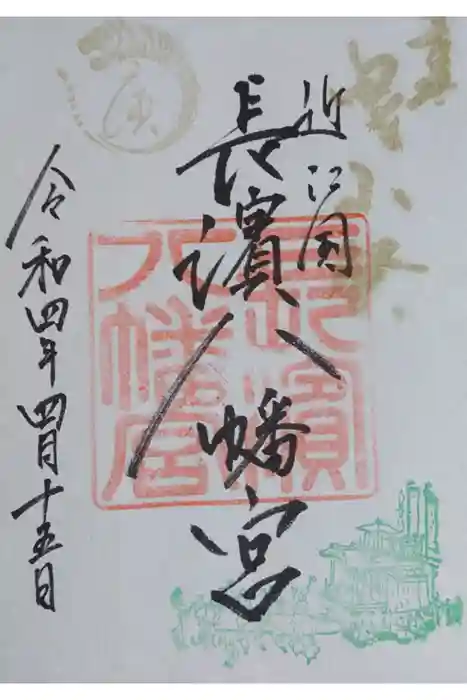 近江国
長濱八幡宮
令和四年四月十五日
長濱
八幡宮
寅